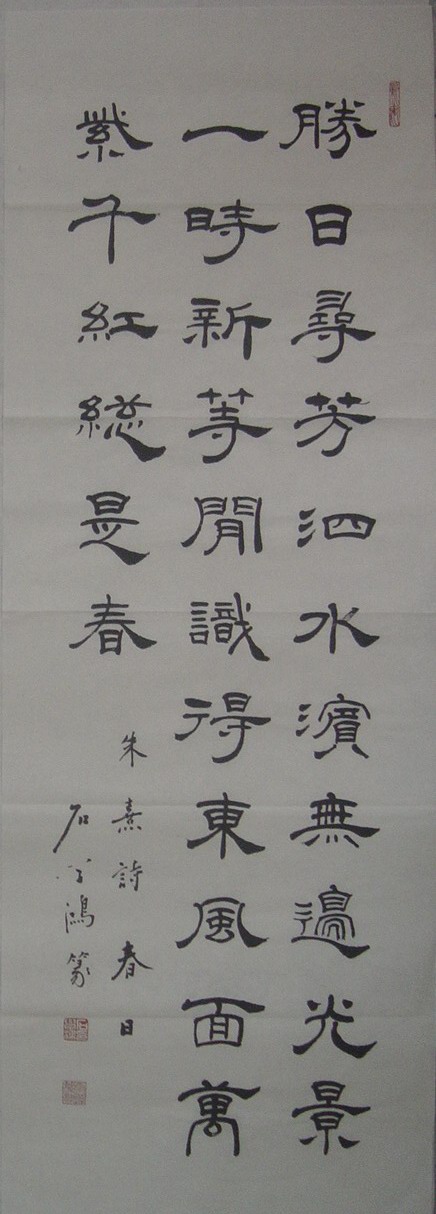 勝日尋芳泗水濱無邊光景
一時新等閒識得東風面萬
紫千紅總是春
朱熹詩春日
石鴻篆